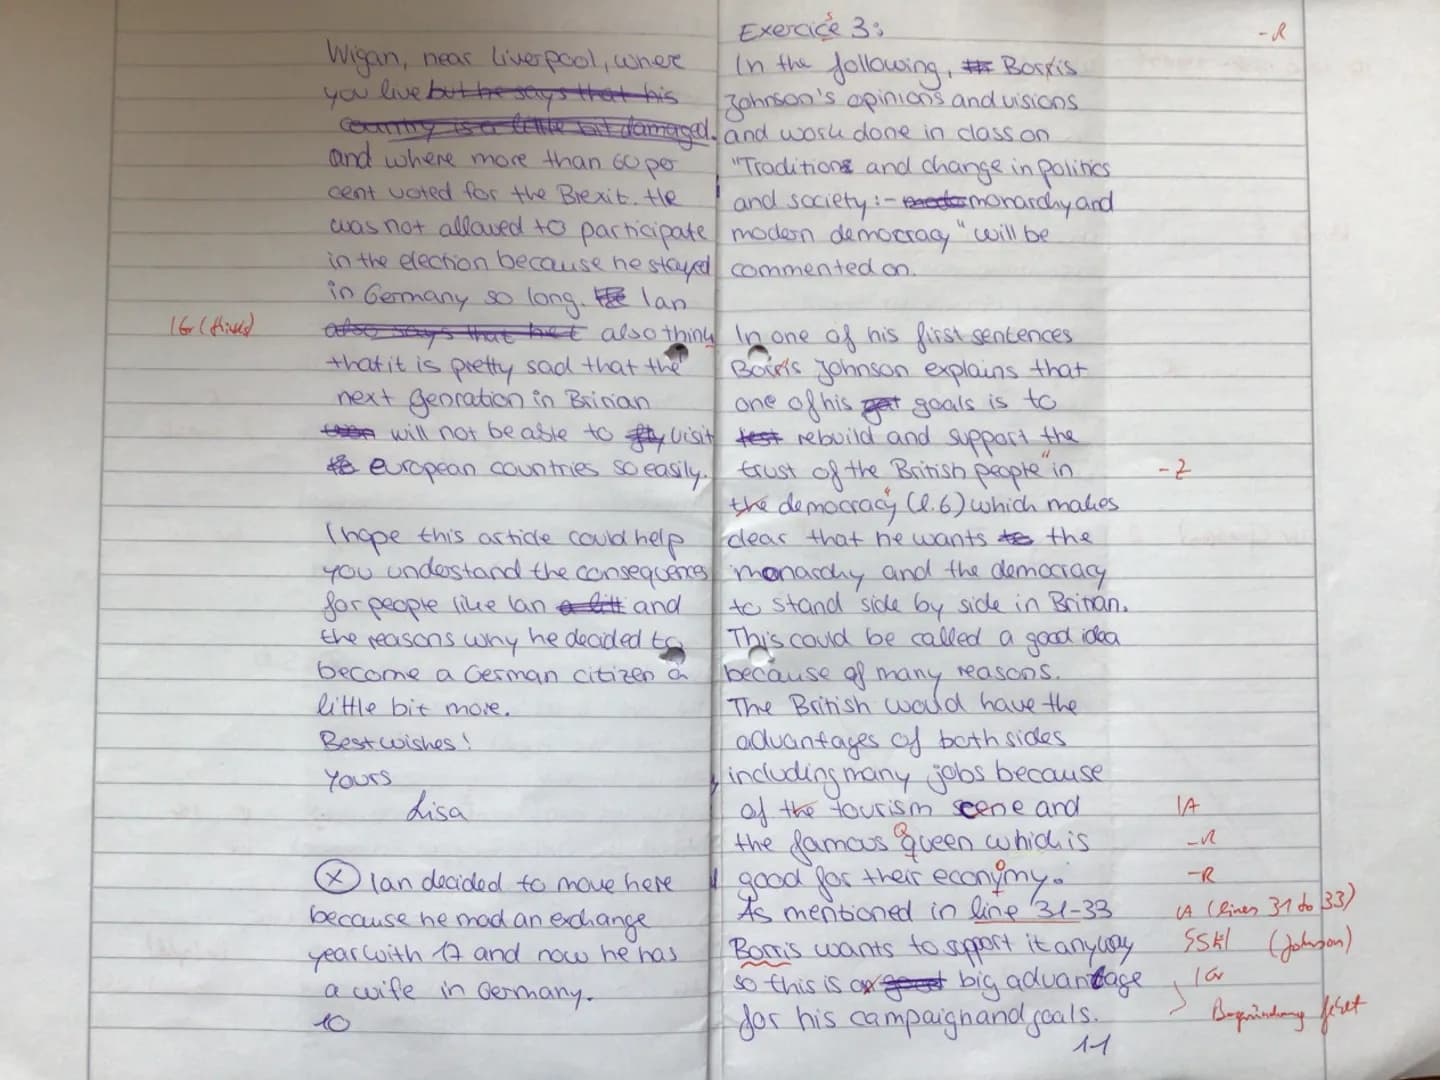 Wigan, near Liverpool, where
you live but he says that his
country is a little bit damaged.
and where more than 60 per
cent voted for the Brexit. He
was not allowed to participate
in the election because he stayed
in Germany so long. Ian
1 Gr (thinks)
also says that het also think
that it is pretty sad that the
next genration in Britian
will not be able to visit
european countries so easily.
I hope this article could help
you understand the consequences
for people like Ian a litt and
the reasons why he decided to
become a German citizen a
little bit more.
Best wishes!
Yours
Lisa
X Ian decided to move here
because he mad an exchange
year with 17 and now he has
a wife in Germany.
10
Exercice 3:
s
-R
In the following, Borris
Johnson's opinions and visions
and work done in class on
"Traditions and change in politics
and society:- monarchy and
modern democracy" will be
commented on.
In one of his first sentences
Borris Johnson explains that
one of his goals is to
rebuild and support the
trust of the British people "in
-Z
the democracy" (l.6) which makes
clear that he wants to the
monarchy and the democracy
to stand side by side in Britian.
This could be called a good idea
because of many reasons.
The British would have the
advantages of both sides
including many jobs because
of the tourism scene and
1A
the famous queen which is
Q
-R
good for their economy.
o
-R
As mentioned in line 31-33
1A (lines 31 to 33)
Borris wants to support it anyway
SSkl (Johnson)
so this is a good big advantage
1 Gr
for his campaign and goals.
Begründung fehlt
11